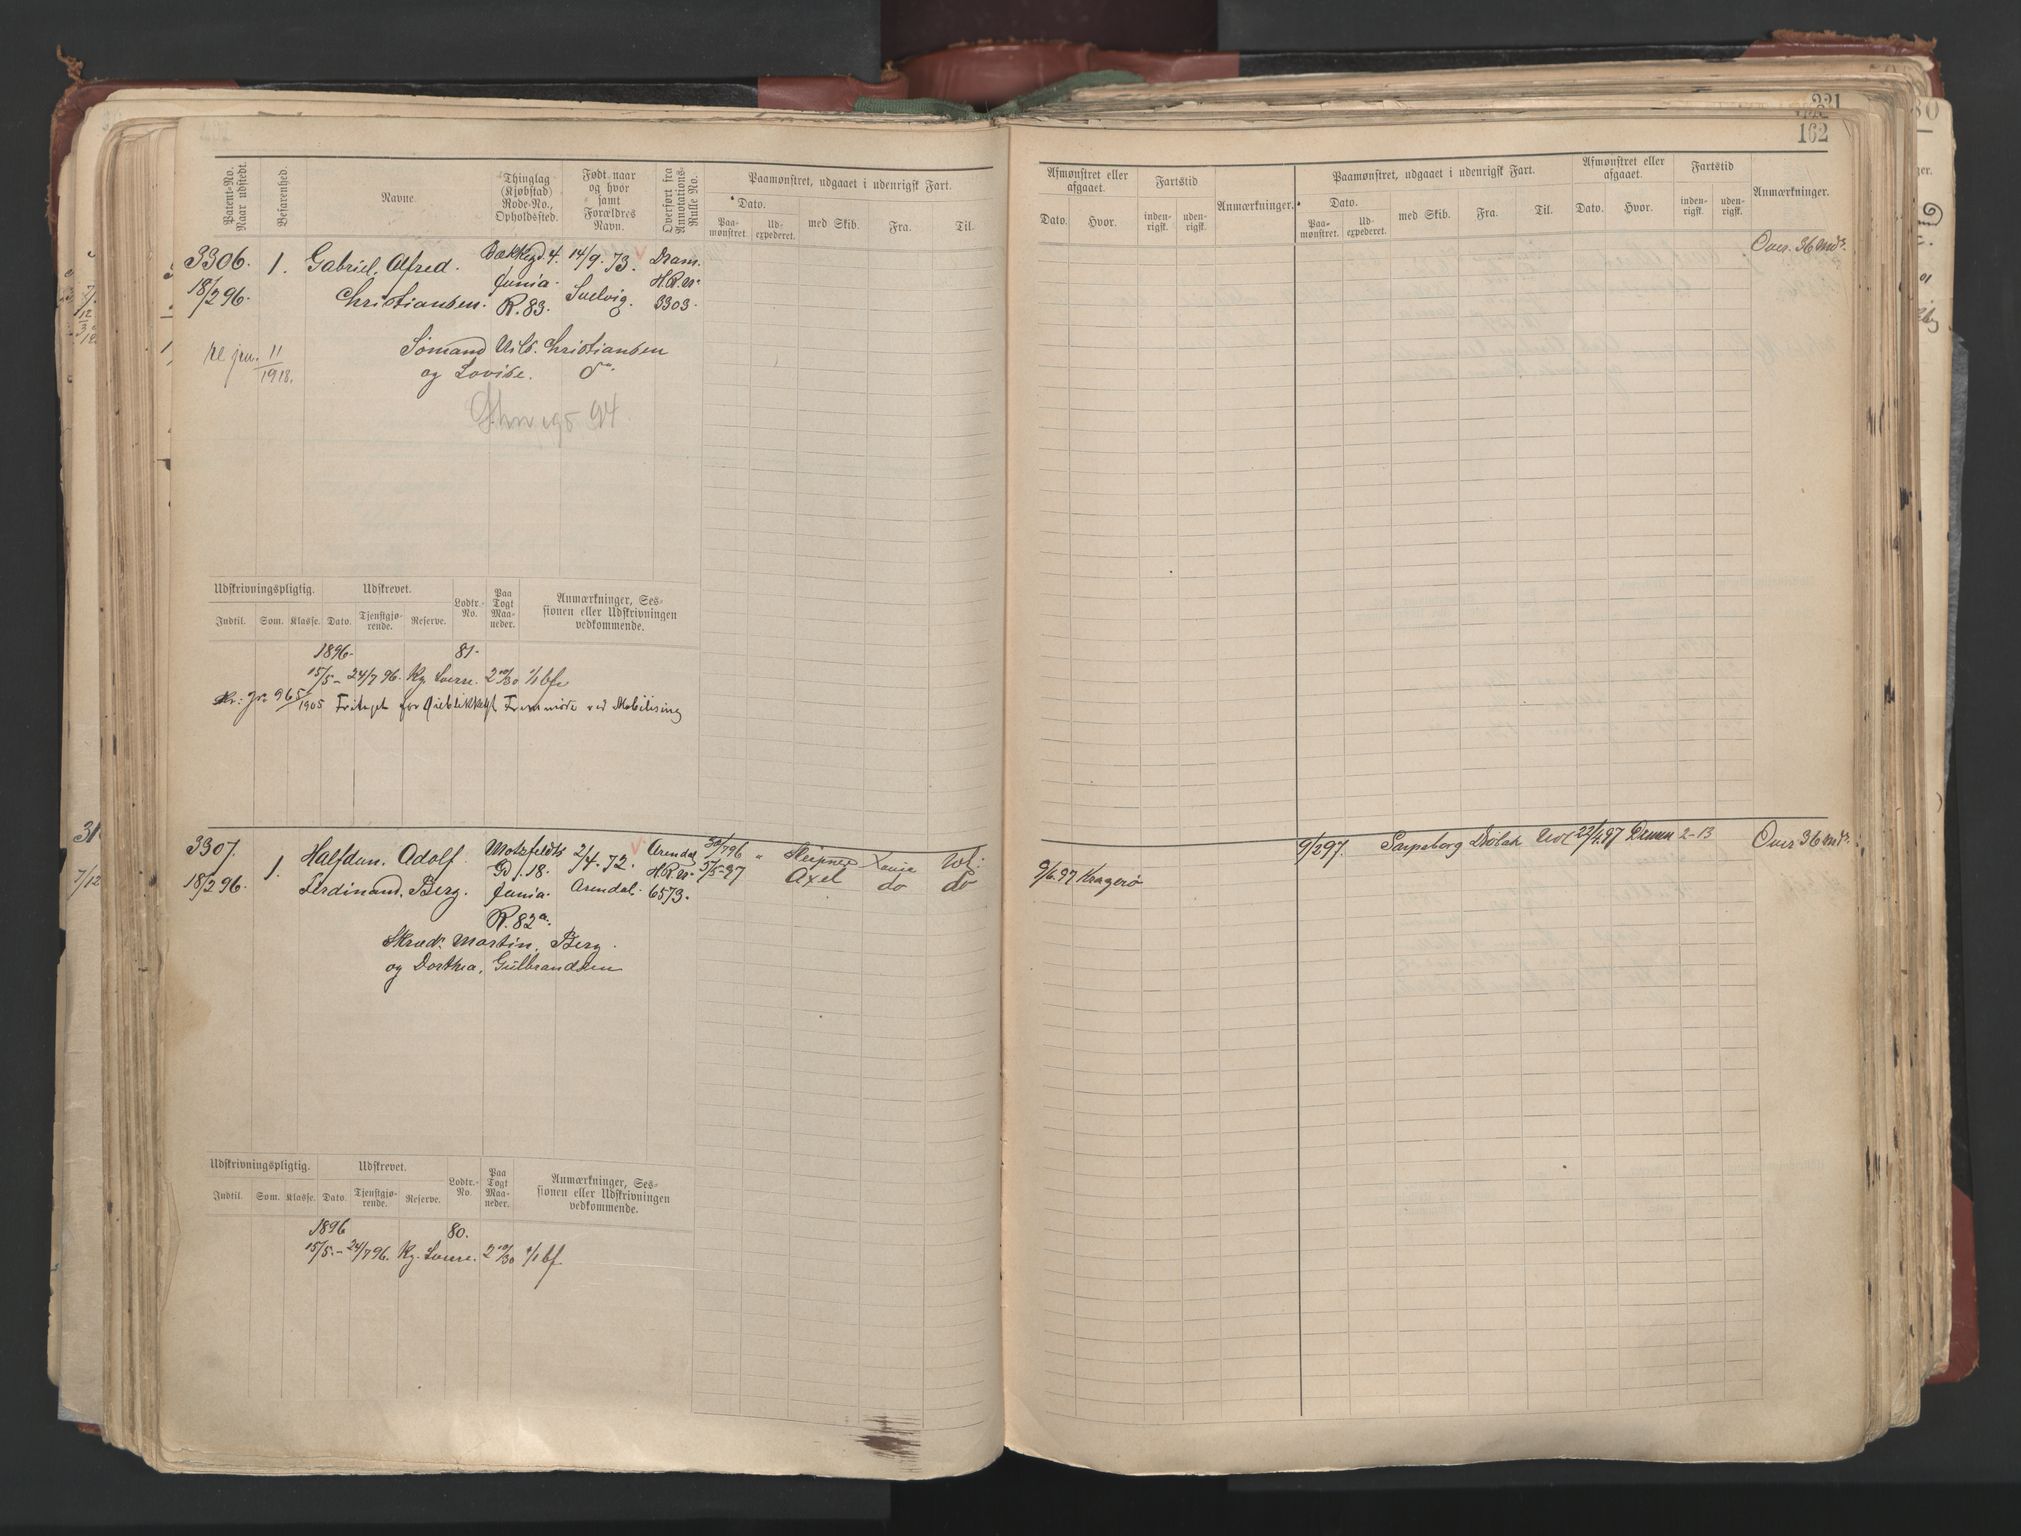 221
162
Patent-No. Naar udstedt.
Befarenhed.
Navne
Thinglag (Kjøbstad) Rode-No., Opholdssted.
Født naar og hvor samt Forældres Navn.
Overført fra Annotations-Rulle No.
Paamønstret, udgaaet i udenrigsk Fart.
Dato.
Paamønstret.
Udexpederet.
med Skib.
Fra.
Til.
3306. 1. Gabriel, Alfred. Bakkegd. 4. 14/9. 73. Dram.
18/2 96. Christiansen. Junia. Svelvig. H.R. Nr.
R. 83. 3303.
11/1918.
Sømand Nils. Christiansen
og Lovise. do.
94.
Udskrivningspligtig.
Udskrevet.
Lodtr.-No.
Paa Togt Maaneder.
Anmærkninger, Sessionen eller Udskrivningen vedkommende.
Indtil. Som. Klasse. Dato. Tjenstgjørende. Reserve.
1896. 81.
15/5 - 24/7 96. Kg. Sverre. 2 10/30 1/1 bf
Kr: Jr. 965/1905 Fritaget for Øieblikkeligt Fremmøde ved Mobilising
3307. 1. Halfdan. Adolf. Motzfeldts 2/4. 72. Arendal 30/7 96 " Sleipner Laur. Vol:
18/2 96. Ferdinand. Berg. Gd. 18. Arendal. H.R. Nr. 5/5-97 Axel do do
Junia. 6573.
R. 82a.
Skrædr. Martin. Berg.
og Dorthea, Gulbrandsen
Udskrivningspligtig.
Udskrevet.
Lodtr.-No.
Paa Togt Maaneder.
Anmærkninger, Sessionen eller Udskrivningen vedkommende.
Indtil. Som. Klasse. Dato. Tjenstgjørende. Reserve.
1896 80.
15/5. - 24/7 96. Kg. Sverre. 2 10/30 1/1 bf
Afmønstret eller afgaaet.
Dato. Hvor.
Fartstid
indenrigsk. udenrigsk.
Anmærkninger.
Paamønstret, udgaaet i udenrigsk Fart.
Dato.
Paamønstret. Udexpederet.
med Skib. Fra. Til.
Afmønstret eller afgaaet.
Dato. Hvor.
Fartstid
indenrigsk. udenrigsk.
Anmærkninger.
Over. 36 Mdr.
9/2 97. Sarpsborg Drøbak Vol 22/4.97 Dramn 2-13 Over 36 Mdr.
9/6. 97 Kragerø